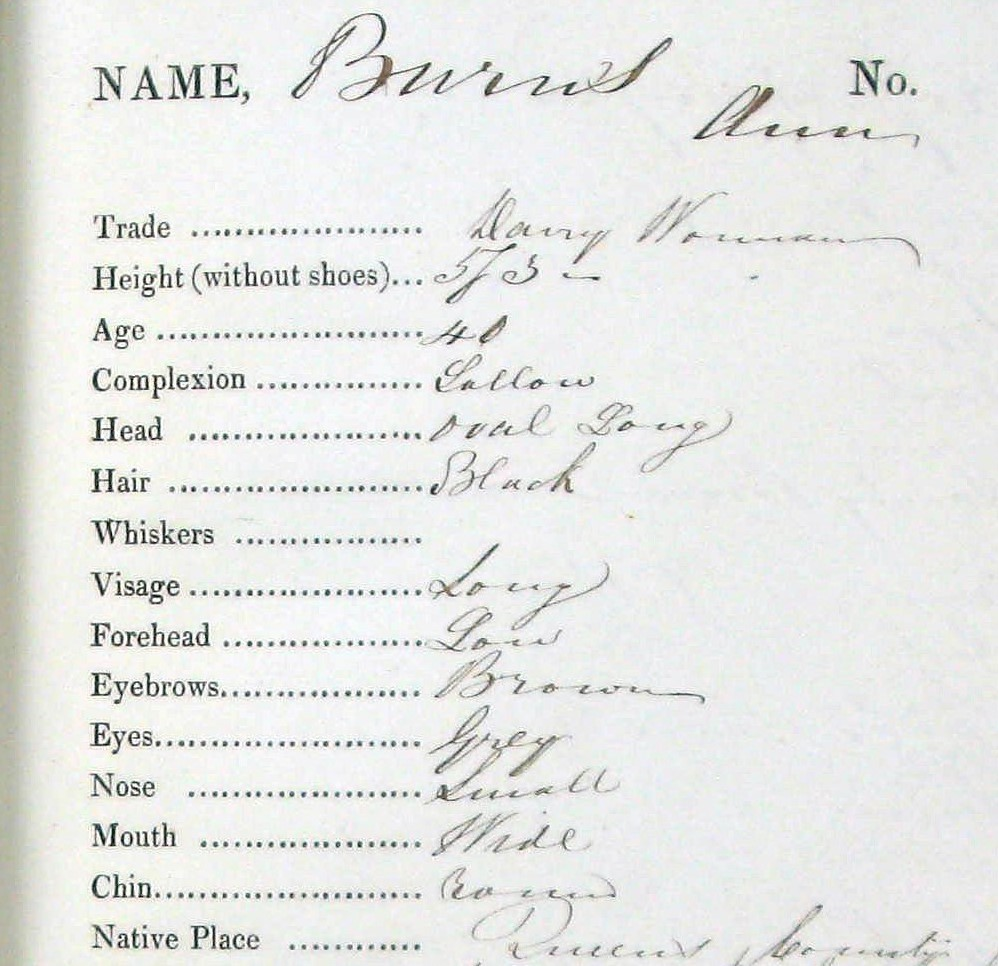 NAME, Burns No.
Ann
Trade ..................... Dairy Woman
Height (without shoes)... 5f 3 -
Age ........................ 40
Complexion ............... Sallow
Head ..................... Oval Long
Hair ....................... Black
Whiskers .................
Visage ..................... Long
Forehead .................. Low
Eyebrows.................. Brown
Eyes........................ Grey
Nose ..................... Small
Mouth .................... Wide
Chin........................ round
Native Place ............ Queens County